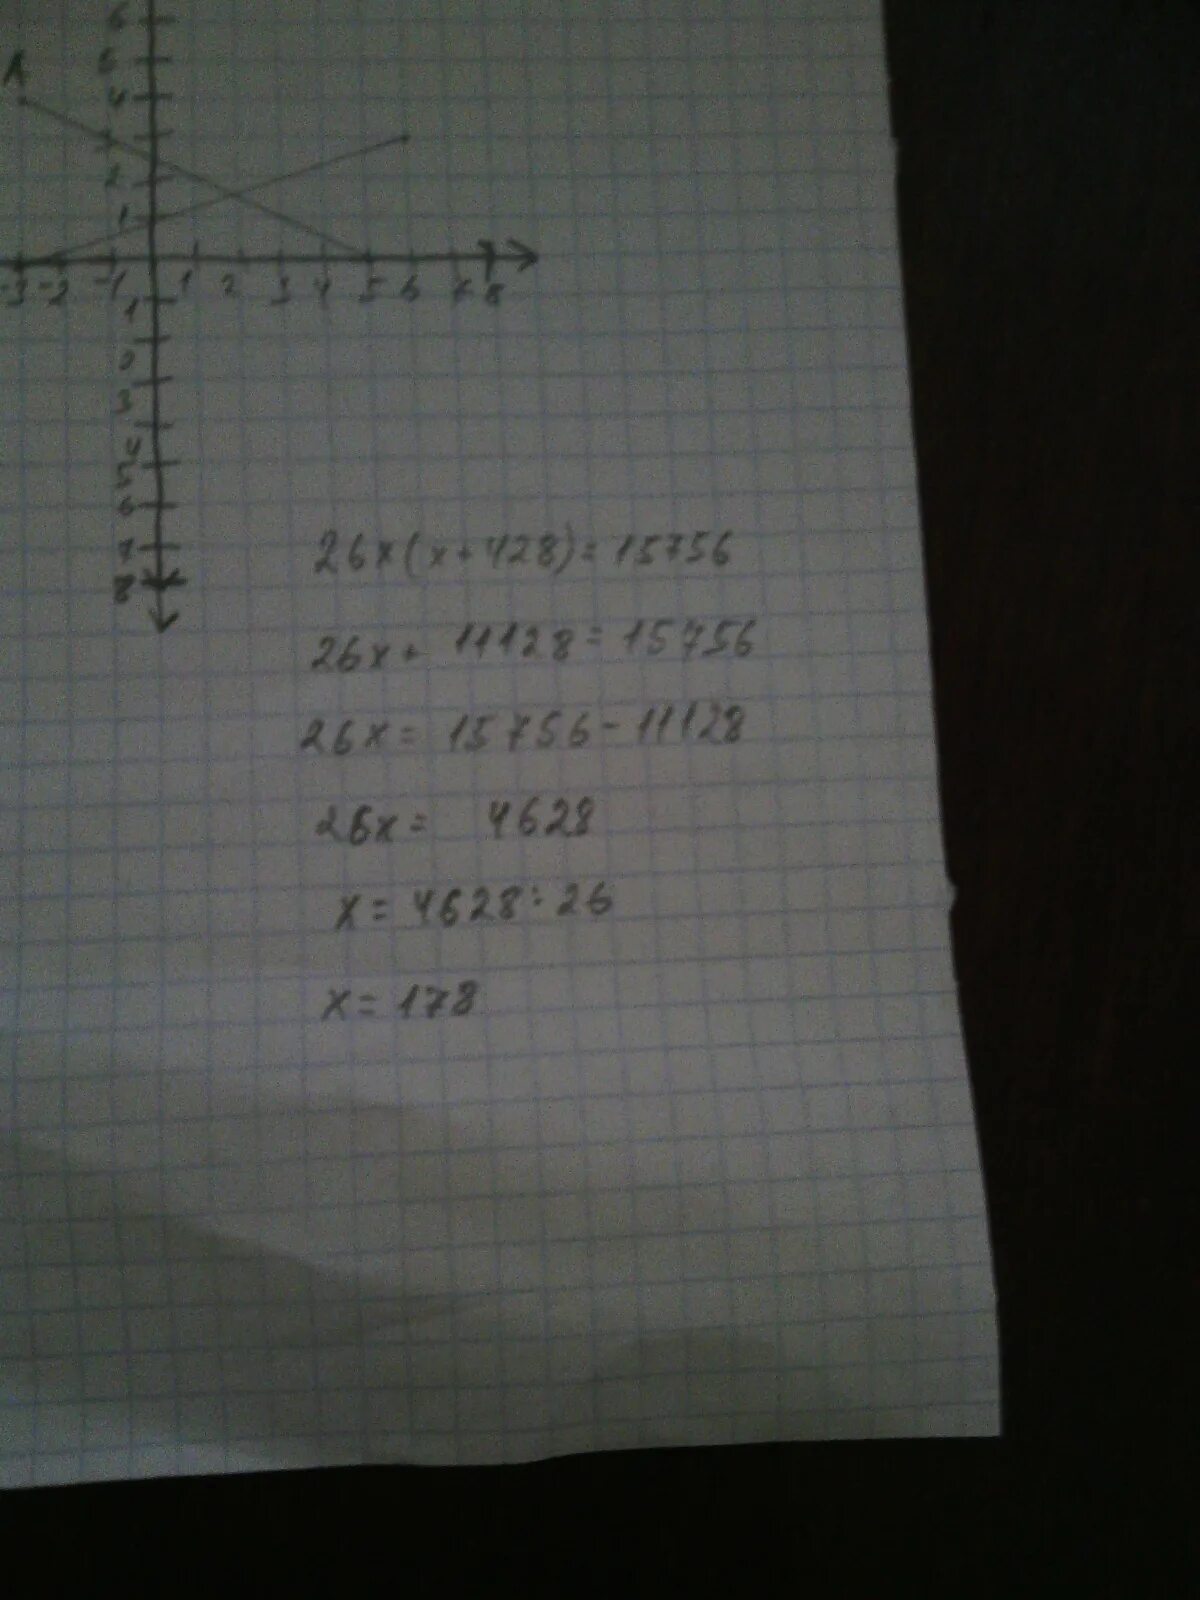 6
5
A
4
2
1
-3 -2 -1 1 2 3 4 5 6 7 8
1
0
3
4
5
6
7
8
26x(x+428)=15756
26x+ 11128=15756
26x= 15756-11128
26x= 4628
x=4628:26
x=178